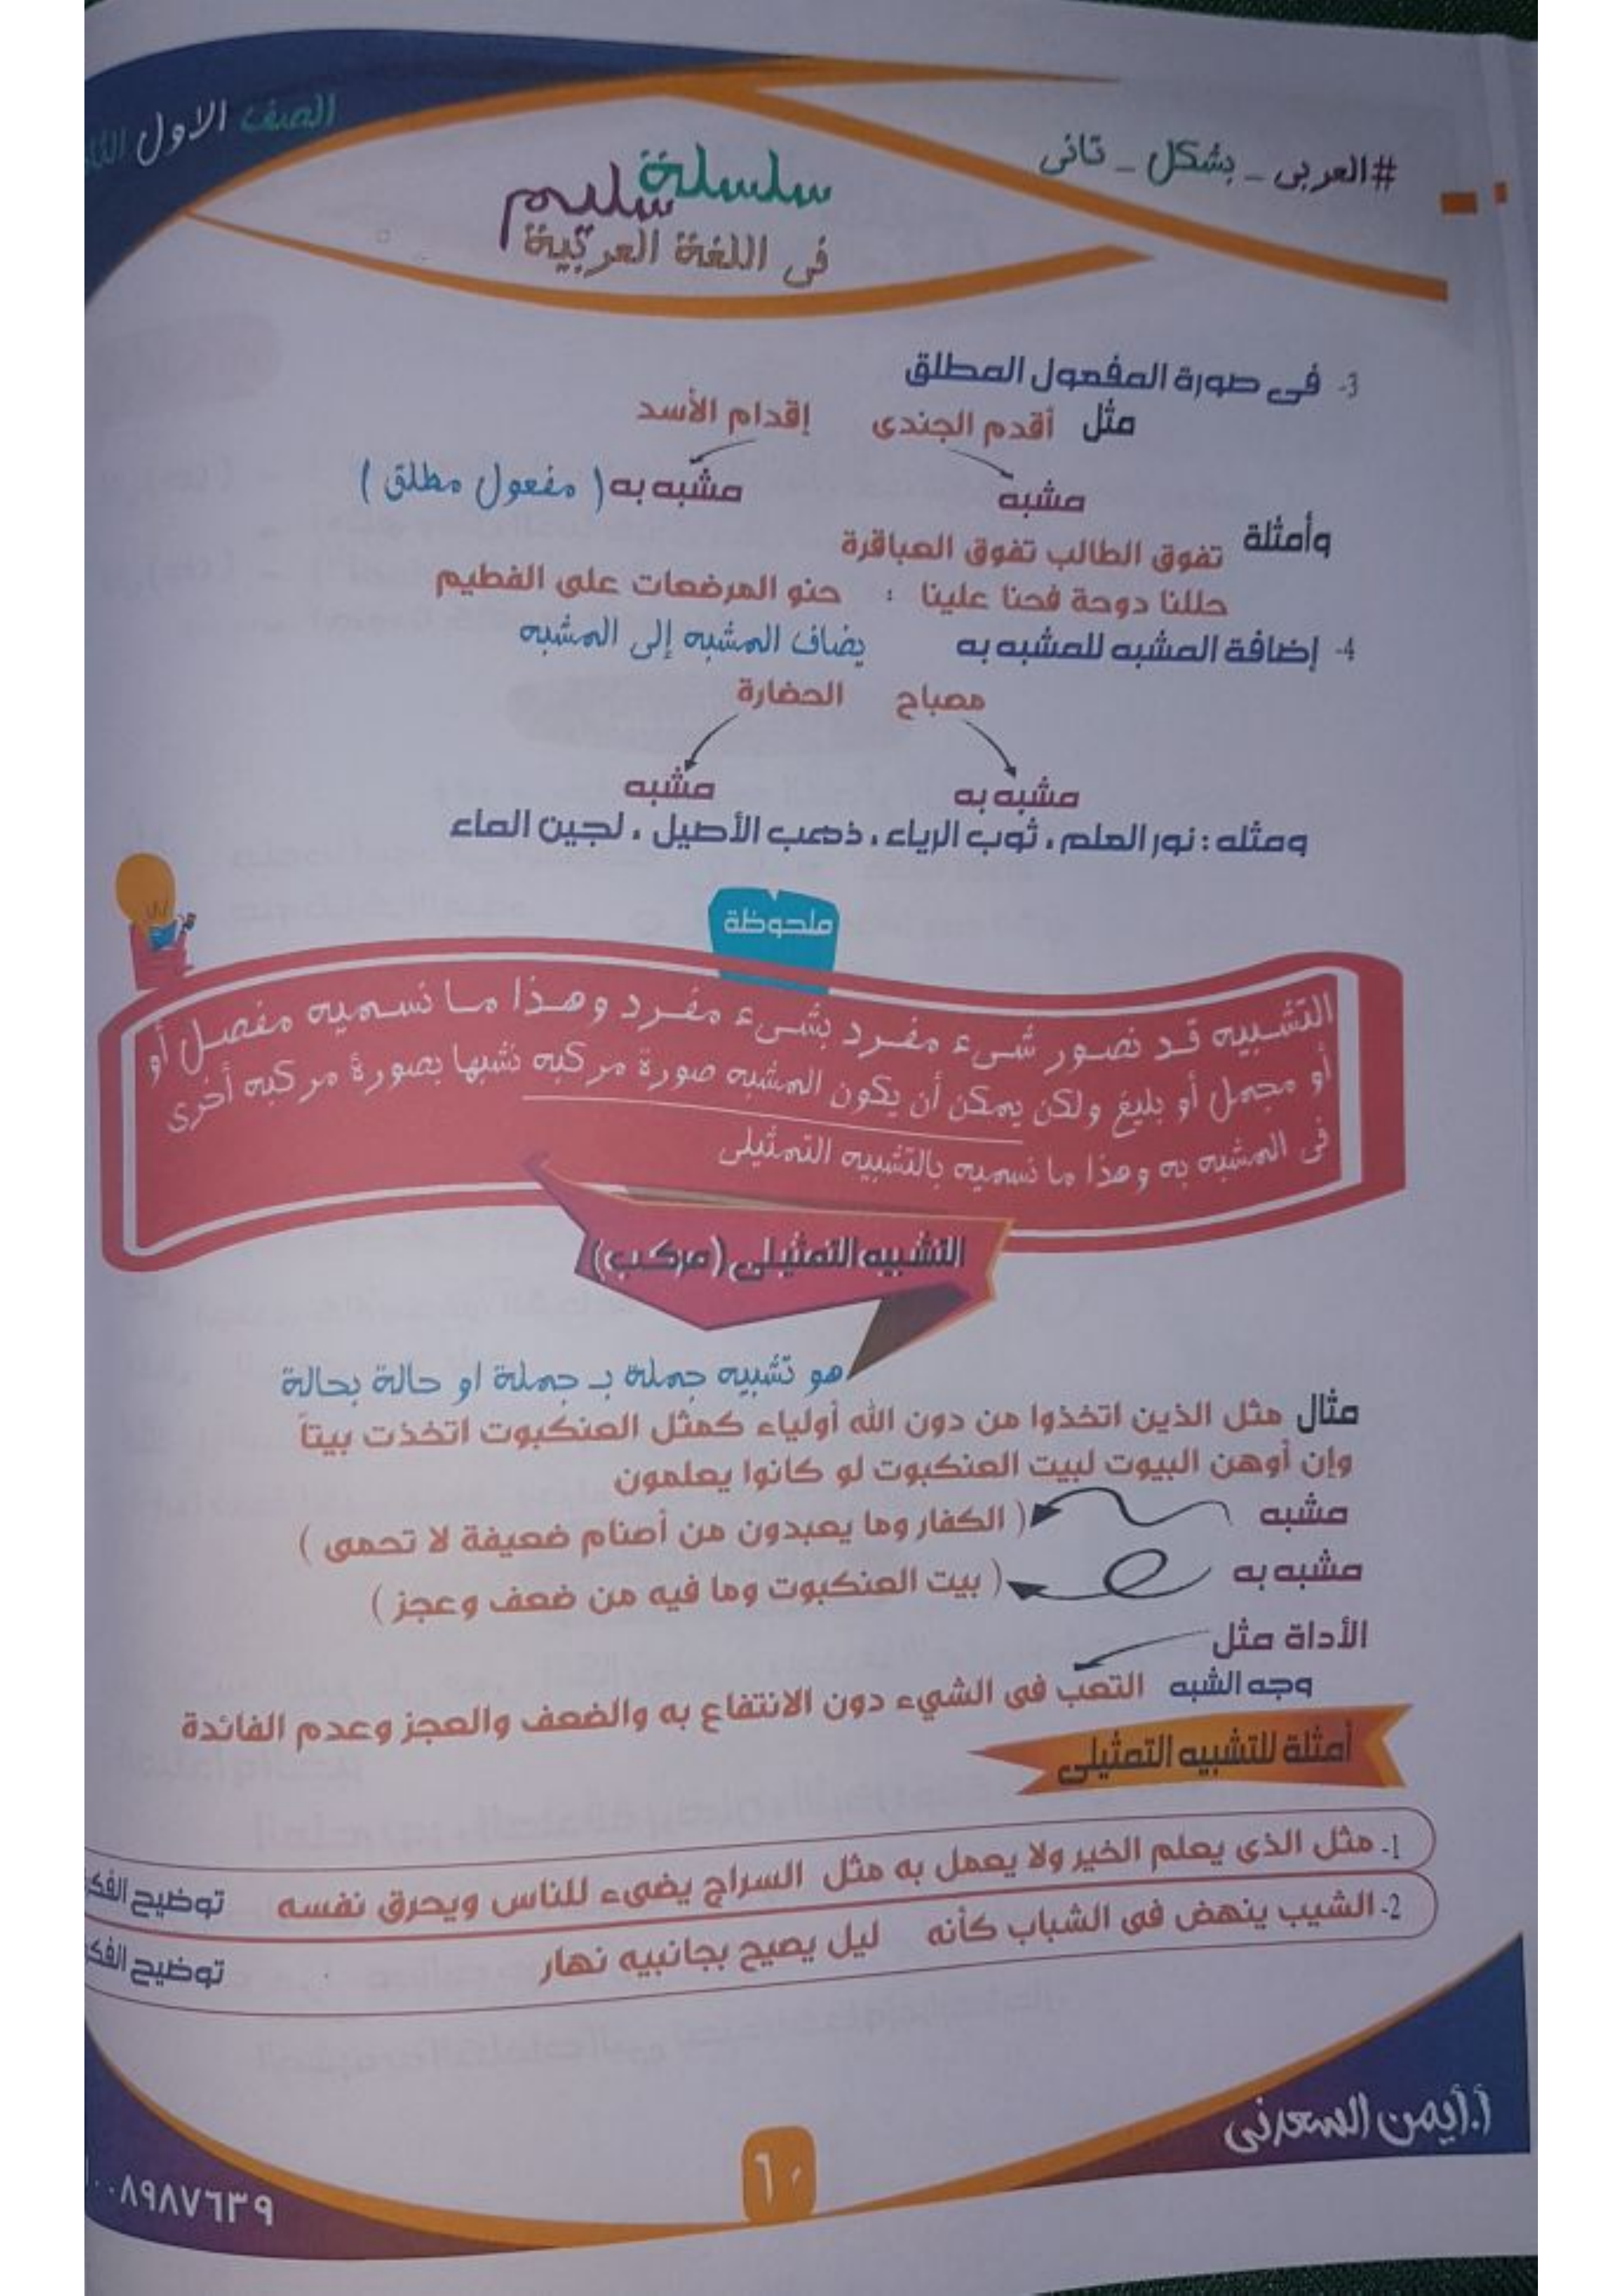 الصف الاول
#العربى _ بشكل _ تانى
سلسلة سليم
فى اللغة العربية
3- فى صورة المفعول المطلق
مثل أقدم الجندى إقدام الأسد
مشبه مشبه به ( مفعول مطلق )
وأمثلة تفوق الطالب تفوق العباقرة
حللنا دوحة فحنا علينا : حنو المرضعات على الفطيم
4- إضافة المشبه للمشبه به يضاف المشبه إلى المشبه
مصباح الحضارة
مشبه به مشبه
ومثله : نور العلم ، ثوب الرياء ، ذهب الأصيل ، لجين الماء
ملحوظة
التشبيه قد نصور شىء مفرد بشىء مفرد وهذا ما نسميه مفصل أو
أو مجمل أو بليغ ولكن يمكن أن يكون المشبه صورة مركبه نشبها بصورة مركبه أخرى
فى المشبه به وهذا ما نسميه بالتشبيه التمثيلى
التشبيه التمثيلى (مركب)
هو تشبيه جملة بـ جملة او حالة بحالة
مثال مثل الذين اتخذوا من دون الله أولياء كمثل العنكبوت اتخذت بيتاً
وإن أوهن البيوت لبيت العنكبوت لو كانوا يعلمون
مشبه ( الكفار وما يعبدون من أصنام ضعيفة لا تحمى )
مشبه به ( بيت العنكبوت وما فيه من ضعف وعجز )
الأداة مثل
وجه الشبه التعب فى الشيء دون الانتفاع به والضعف والعجز وعدم الفائدة
أمثلة للتشبيه التمثيلى
1- مثل الذى يعلم الخير ولا يعمل به مثل السراج يضىء للناس ويحرق نفسه توضيح
2- الشيب ينهض فى الشباب كأنه ليل يصيح بجانبيه نهار توضيح
أ.أيمن السعدنى
٦٠
٠٠٨٩٨٧٦٣٩